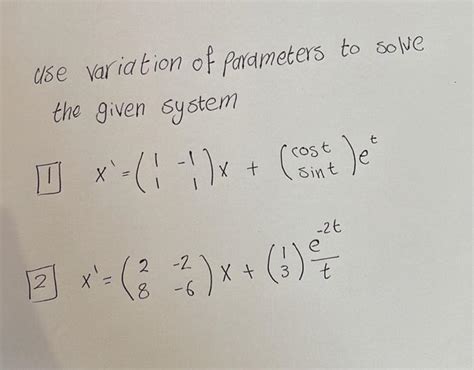 use variation of parameters to solve
the given system
1 x' = (1 -1; 1 1) x + (cost; sint) e^t
2 x' = (2 -2; 8 -6) x + (1; 3) e^-2t / t